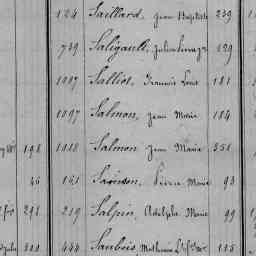 124 Saillard, Jean Baptiste 239
739 Saligault, 129
1087 Salliot, Francois Louis 181
1097 Salmon, Jean Marie 184
198 1018 Salmon Jean Marie 351
46 161 Pierre Marie 93
291 219 Salpin, Adolphe Marie 99
444 Sanbois, Mathurin 115